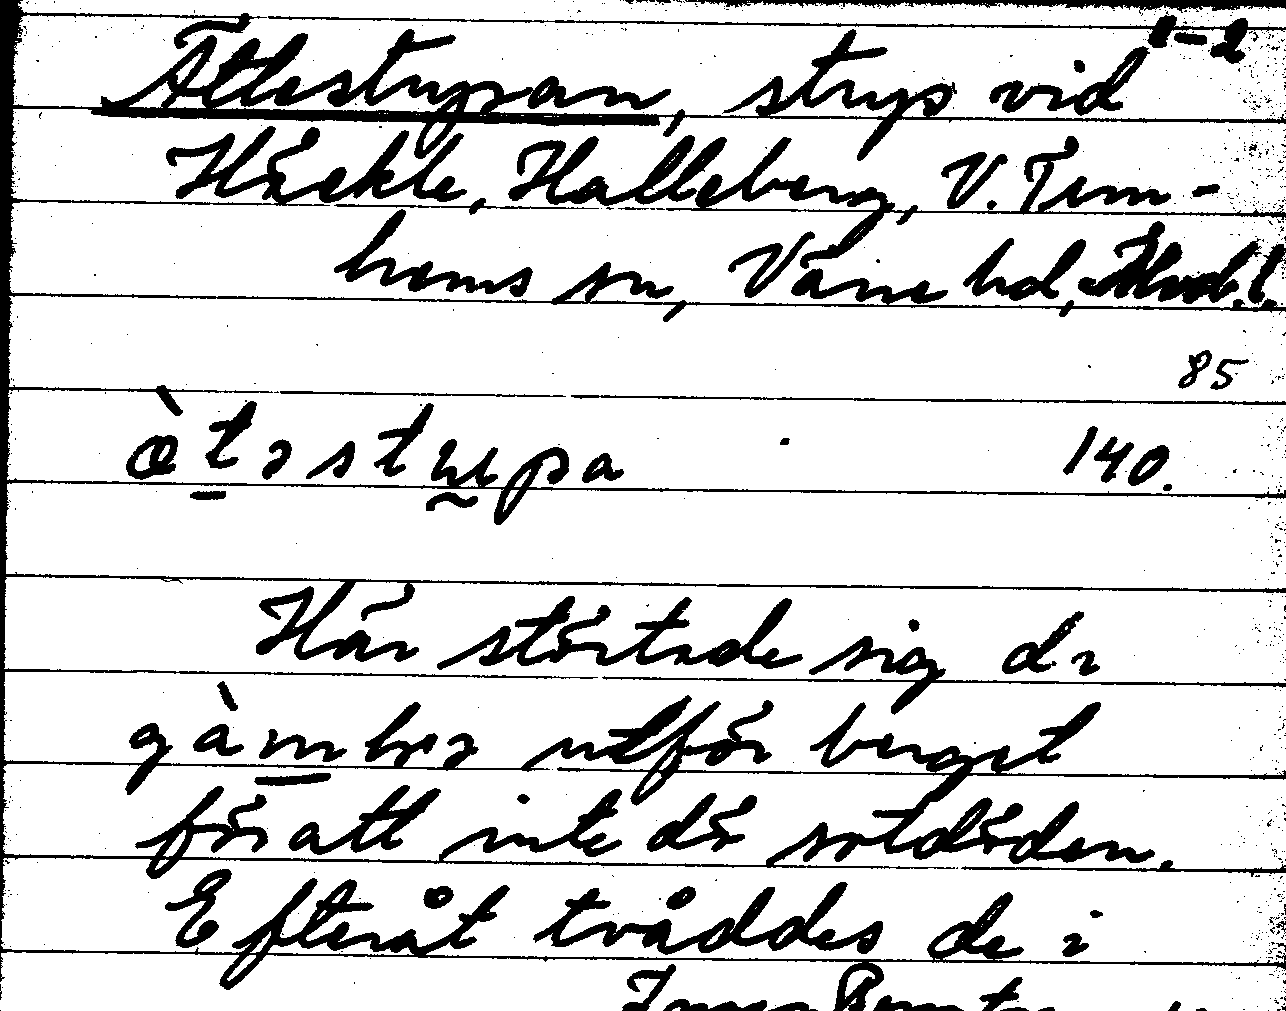 1-2
Ättestupan, stup vid
Häckle, Halleberg, V. Tun-
hems sn, Väne hd,
85
140.
Här störtade sig de
utför berget
för att inte dö sotdöden.
Efteråt tvåddes de i